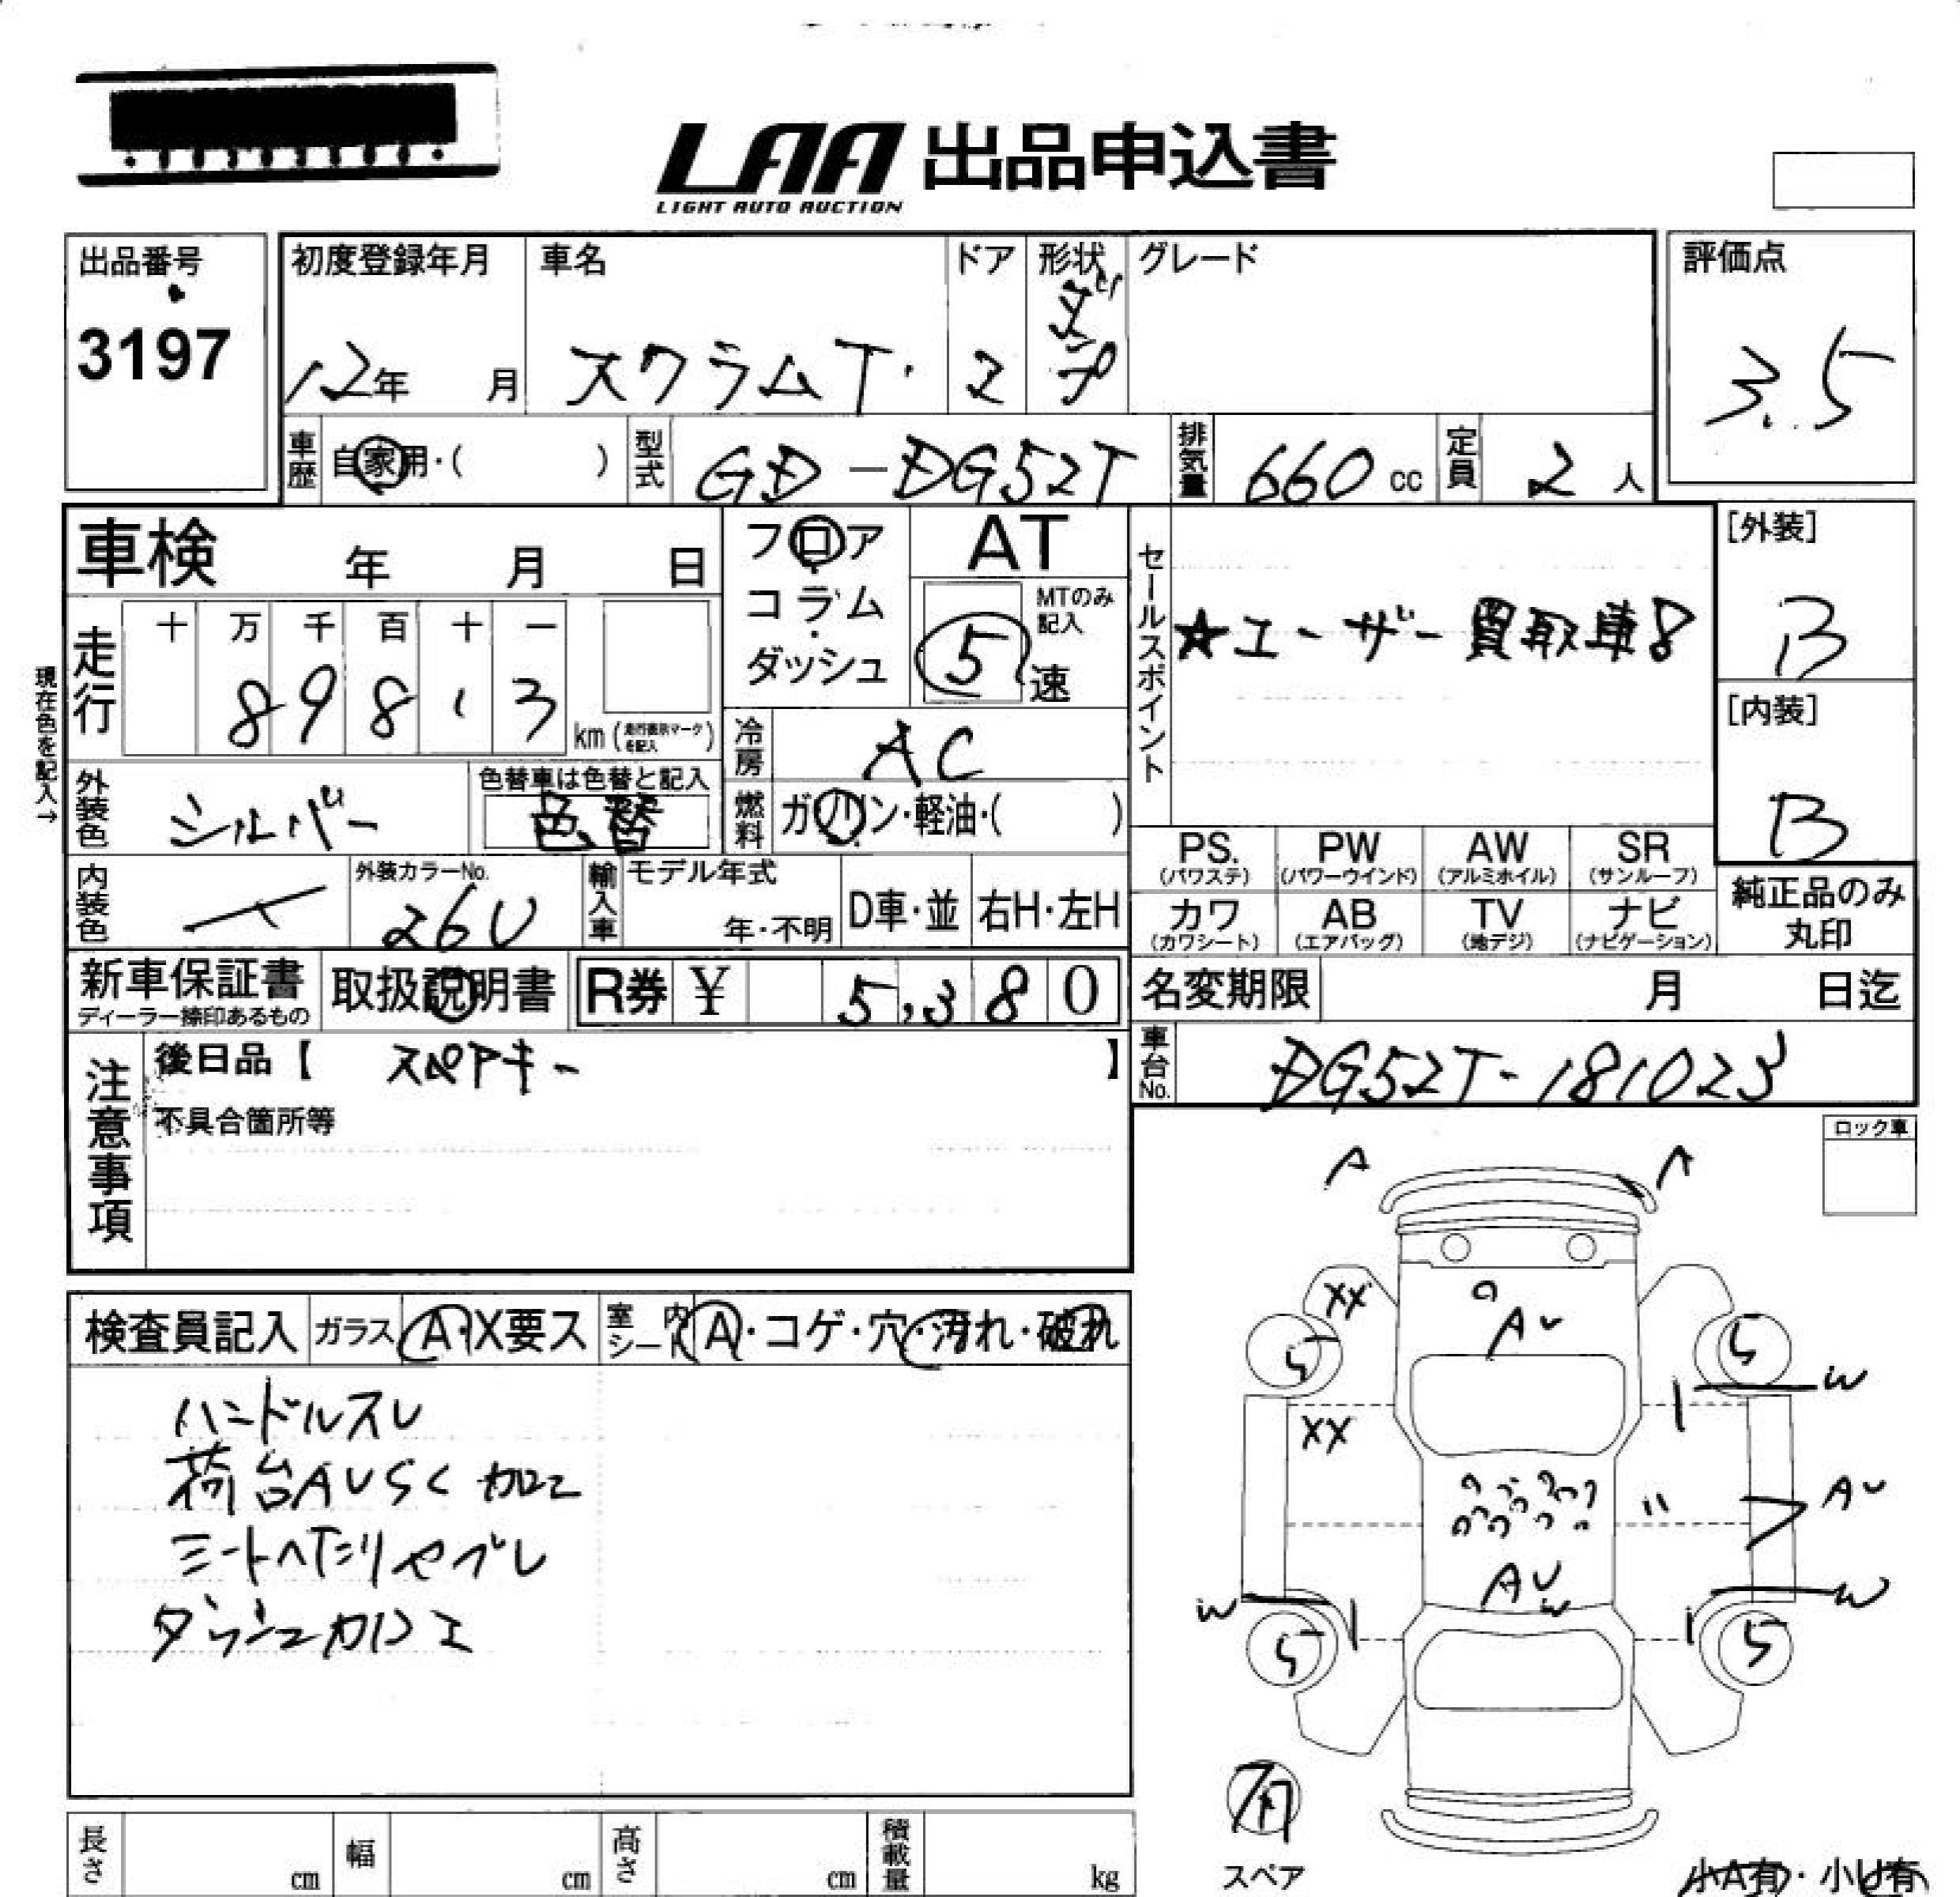 LAA 出品申込書
LIGHT AUTO AUCTION
出品番号
3197
初度登録年月
12年 月
車名
スクラムT
ドア
2
形状
グレード
評価点
3.5
車歴
自家用・( )
型式
GD-DG52T
排気量
660 cc
定員
2 人
車検 年 月 日
フロア
コラム
ダッシュ
AT
MTのみ
記入
5
速
セールスポイント
★ユーザー買取車8
[外装]
B
[内装]
B
現在色を記入→
走行
十 万 千 百 十 一
8 9 8 1 3
km (走行距離マークを記入)
冷房
AC
外装色
シルバー
色替車は色替と記入
色替
燃料
ガソリン・軽油・( )
PS.
(パワステ)
PW
(パワーウインド)
AW
(アルミホイル)
SR
(サンルーフ)
カワ
(カワシート)
AB
(エアバッグ)
TV
(地デジ)
ナビ
(ナビゲーション)
純正品のみ
丸印
内装色
外装カラーNo.
26U
輸入車
モデル年式
年・不明
D車・並
右H・左H
新車保証書
ディーラー捺印あるもの
取扱説明書
R券 ¥ 5,380
名変期限 月 日迄
車台No.
DG52T-181023
注意事項
後日品【 スペアキー 】
不具合箇所等
ロック車
A
A
XX
AU
5
5
W
XX
AU
AU
W
W
W
5
5
検査員記入
ガラス
A・X要ス
室内
シート
A・コゲ・穴・汚れ・破れ
ハンドルスレ
荷台AUSC加工
シートヘタリヤブレ
ダッシュカロエ
スペア
小A有・小U有
長さ cm
幅 cm
高さ cm
積載量 kg